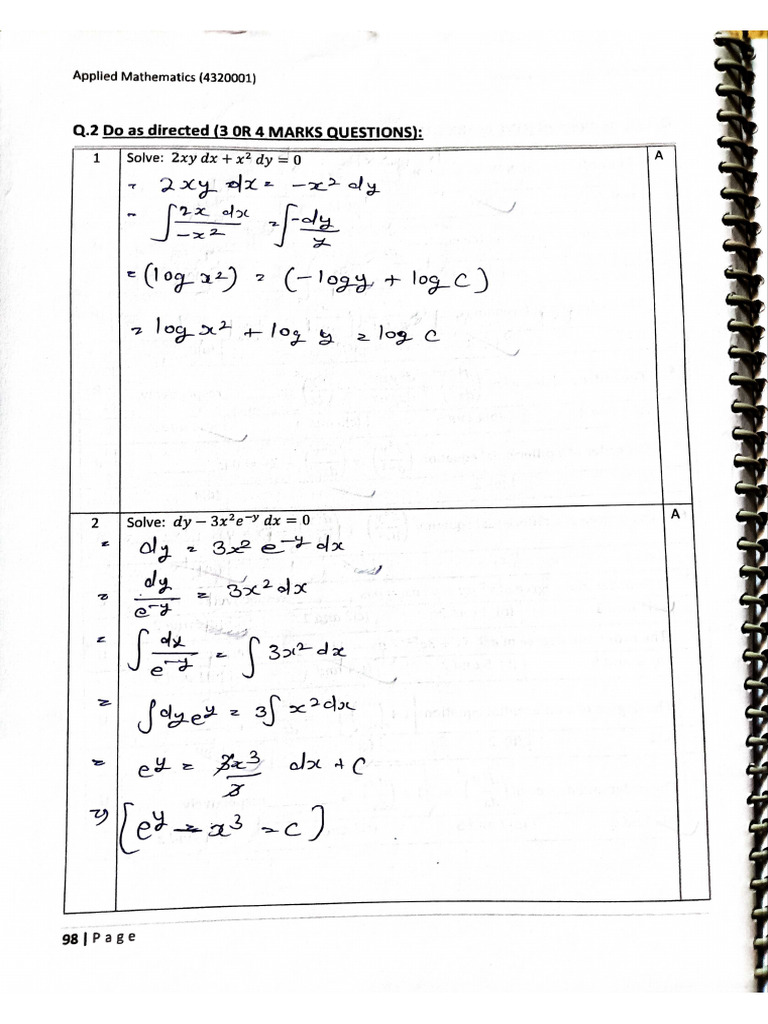 Applied Mathematics (4320001)
Q.2 Do as directed (3 0R 4 MARKS QUESTIONS):
1 Solve: 2xy dx + x² dy = 0 A
= 2xy dx = -x² dy
= ∫ 2x dx / -x² = ∫ -dy / y
= (log x²) = (-log y + log C)
= log x² + log y = log C
2 Solve: dy − 3x²e⁻ʸ dx = 0 A
= dy = 3x² e⁻ʸ dx
= dy / e⁻ʸ = 3x² dx
= ∫ dy / e⁻ʸ = ∫ 3x² dx
= ∫ dy eʸ = 3∫ x² dx
= eʸ = 3x³ / 3 dx + C
=) [eʸ - x³ = C]
98 | Page